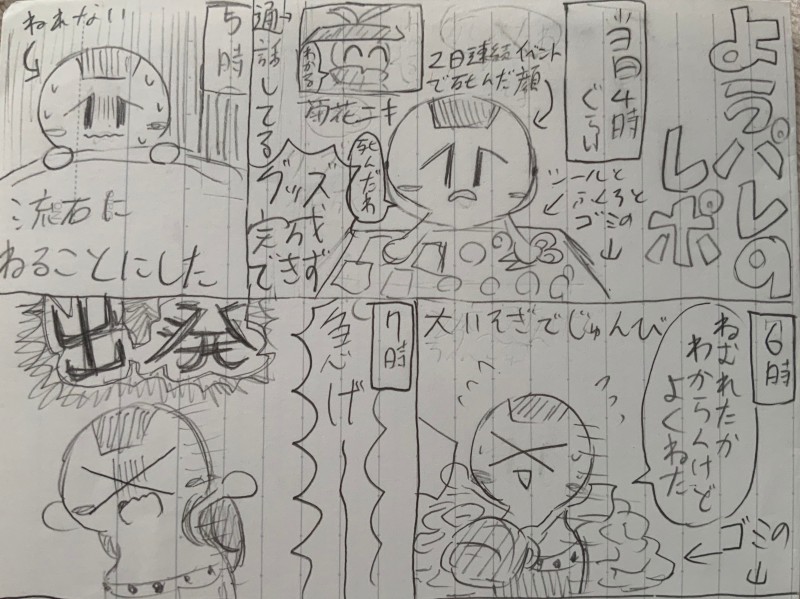 ようパレの
レポ
当日4時
ぐらい
2日連続イベント
で死んだ顔
シールと
ふくろと
ゴミの
山
死んだわ
わかる
雨花ニキ
通話してる
グッズ
完成
できず
5時
ねれない
流石に
ねることにした
6時
ねむれたか
わからんけど
よくねた
大いそぎでじゅんび
ゴミの
山
7時
急げー
出発